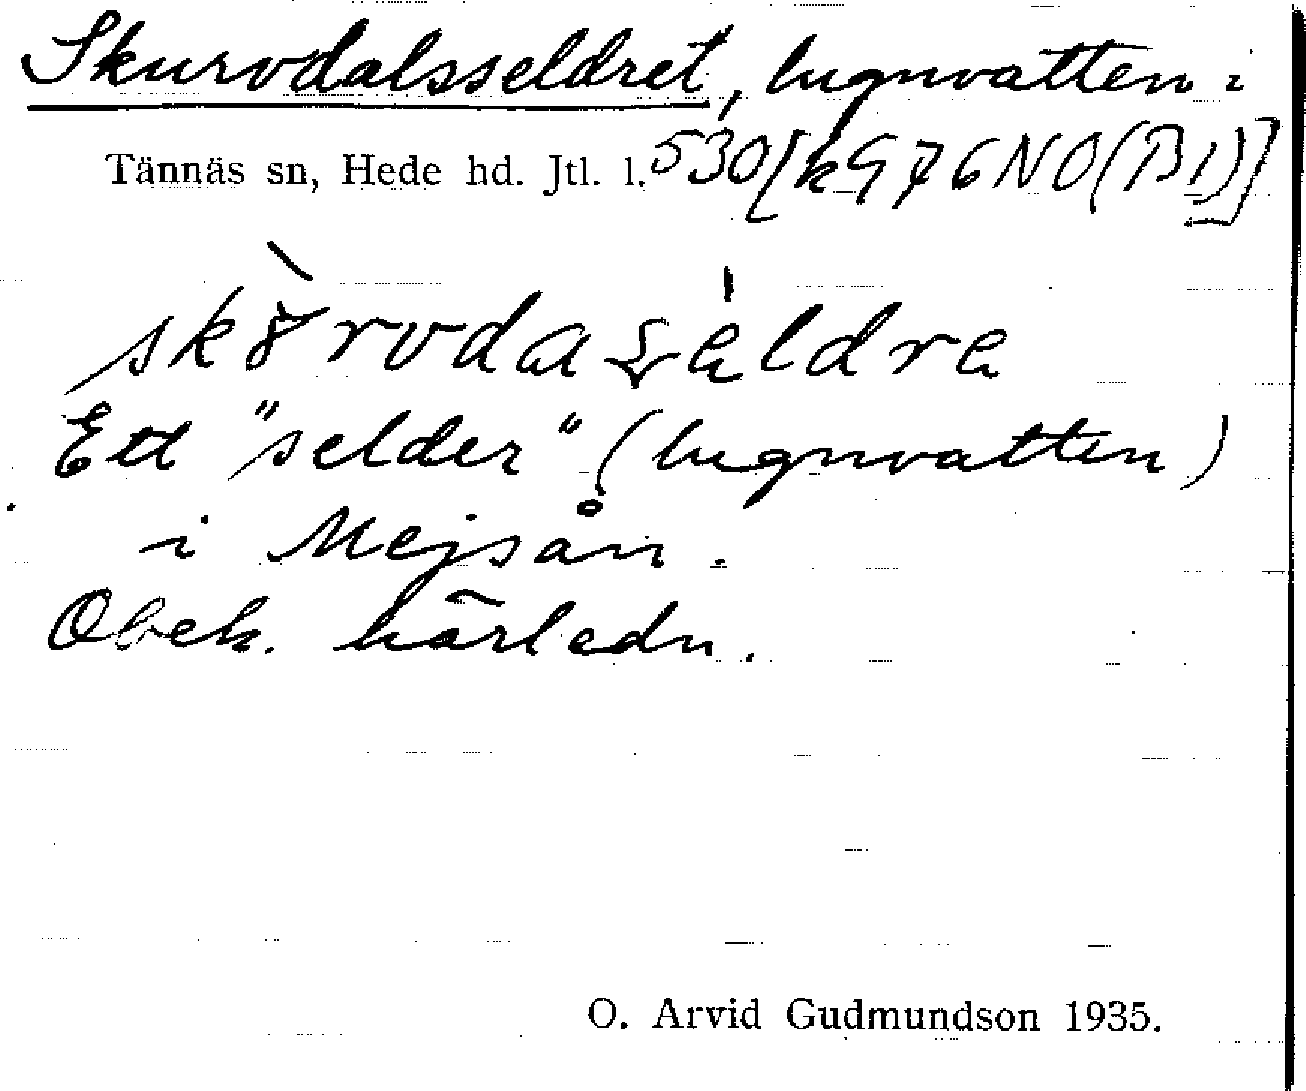 Skurvdalsseldret, lugnvatten i
Tännäs sn, Hede hd. Jtl. l. 530 [k976NO(B1)]
Ett "selder" (lugnvatten)
i Mejsån.
Obek. härledn.
O. Arvid Gudmundson 1935.